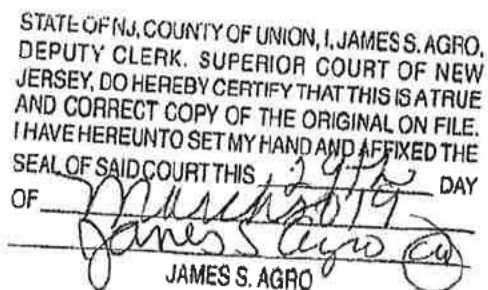 STATE OF NJ, COUNTY OF UNION, I, JAMES S. AGRO,
DEPUTY CLERK. SUPERIOR COURT OF NEW
JERSEY, DO HEREBY CERTIFY THAT THIS IS A TRUE
AND CORRECT COPY OF THE ORIGINAL ON FILE.
I HAVE HEREUNTO SET MY HAND AND AFFIXED THE
SEAL OF SAID COURT THIS DAY
OF March 2019
James S Agro
JAMES S. AGRO